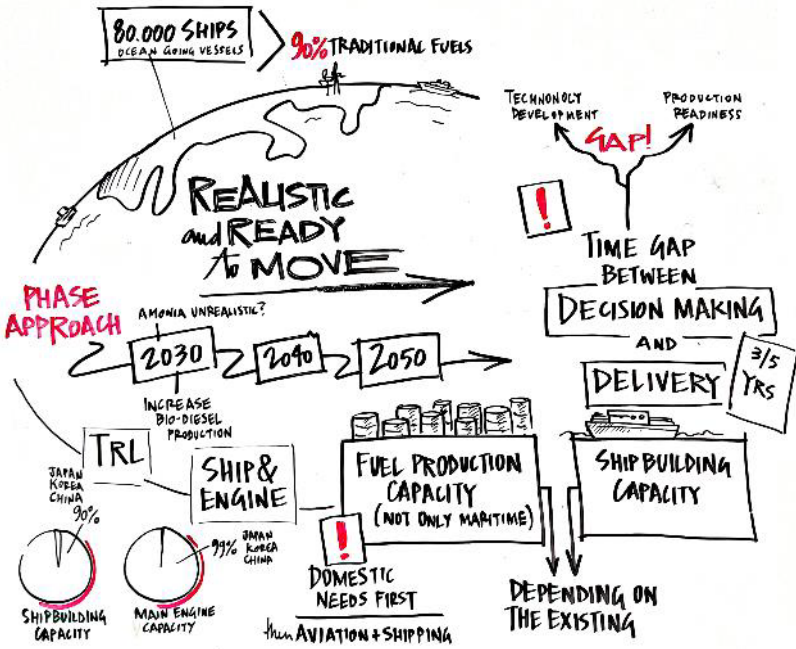 80.000 SHIPS
OCEAN GOING VESSELS
90% TRADITIONAL FUELS
TECHNONOLY
DEVELOPMENT
PRODUCTION
READINESS
GAP!
!
REALISTIC
and READY
to MOVE
TIME GAP
BETWEEN
DECISION MAKING
AND
DELIVERY
3/5
YRS
PHASE
APPROACH
AMONIA UNREALISTIC?
2030
2040
2050
INCREASE
BIO-DIESEL
PRODUCTION
TRL
SHIP &
ENGINE
FUEL PRODUCTION
CAPACITY
(NOT ONLY MARITIME)
SHIPBUILDING
CAPACITY
JAPAN
KOREA
CHINA
90%
SHIPBUILDING
CAPACITY
99%
JAPAN
KOREA
CHINA
MAIN ENGINE
CAPACITY
!
DOMESTIC
NEEDS FIRST
then AVIATION + SHIPPING
DEPENDING ON
THE EXISTING